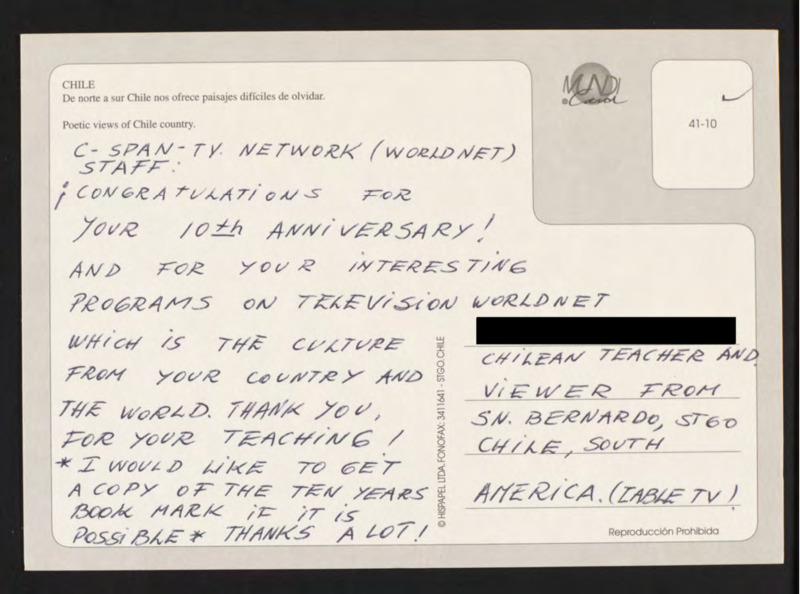 CHILE
De norte a sur Chile nos ofrece paisajes difíciles de olvidar.
Poetic views of Chile country.
MUNDI
Card
41-10
C-SPAN-TV. NETWORK (WORLDNET)
STAFF:
¡CONGRATULATIONS FOR
YOUR 10th ANNIVERSARY!
AND FOR YOUR INTERESTING
PROGRAMS ON TELEVISION WORLDNET
WHICH IS THE CULTURE
FROM YOUR COUNTRY AND
THE WORLD. THANK YOU,
FOR YOUR TEACHING!
* I WOULD LIKE TO GET
A COPY OF THE TEN YEARS
BOOK MARK IF IT IS
POSSIBLE * THANKS A LOT!
© HISPAPEL LTDA. FONOFAX: 3411641 - STGO. CHILE
CHILEAN TEACHER AND
VIEWER FROM
SN. BERNARDO, STGO
CHILE, SOUTH
AMERICA. (CABLE TV)
Reproducción Prohibida